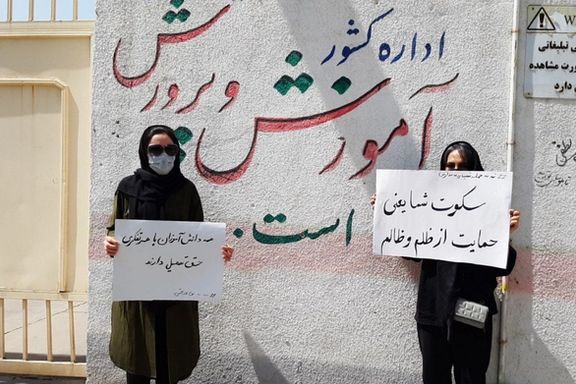 اداره کشور
آموزش و پرورش
است.
W
ی تبلیغاتی
ورت مشاهده
دارد
دانش آموزان با هر تفکری
حق تحصیل دارند
سکوت شما یعنی
حمایت از ظلم و ظالم